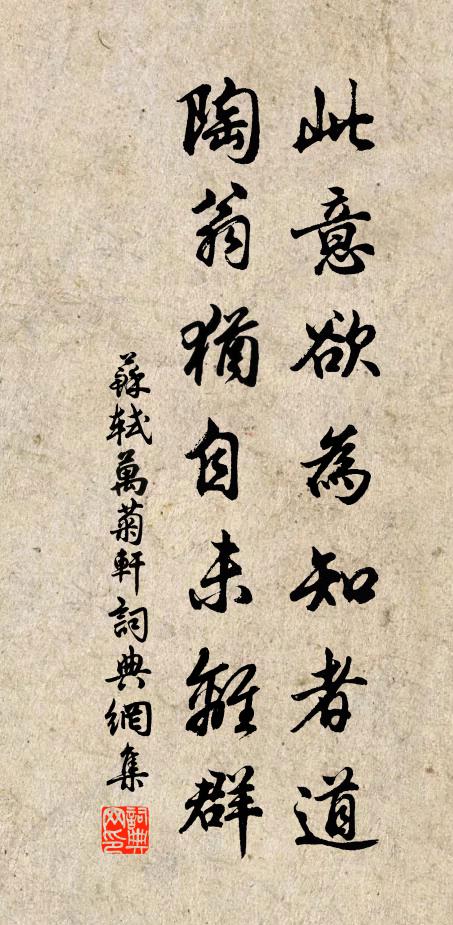 此意欲為知者道
陶翁猶自未離群
蘇軾萬菊軒詞典網集
詞典
网印